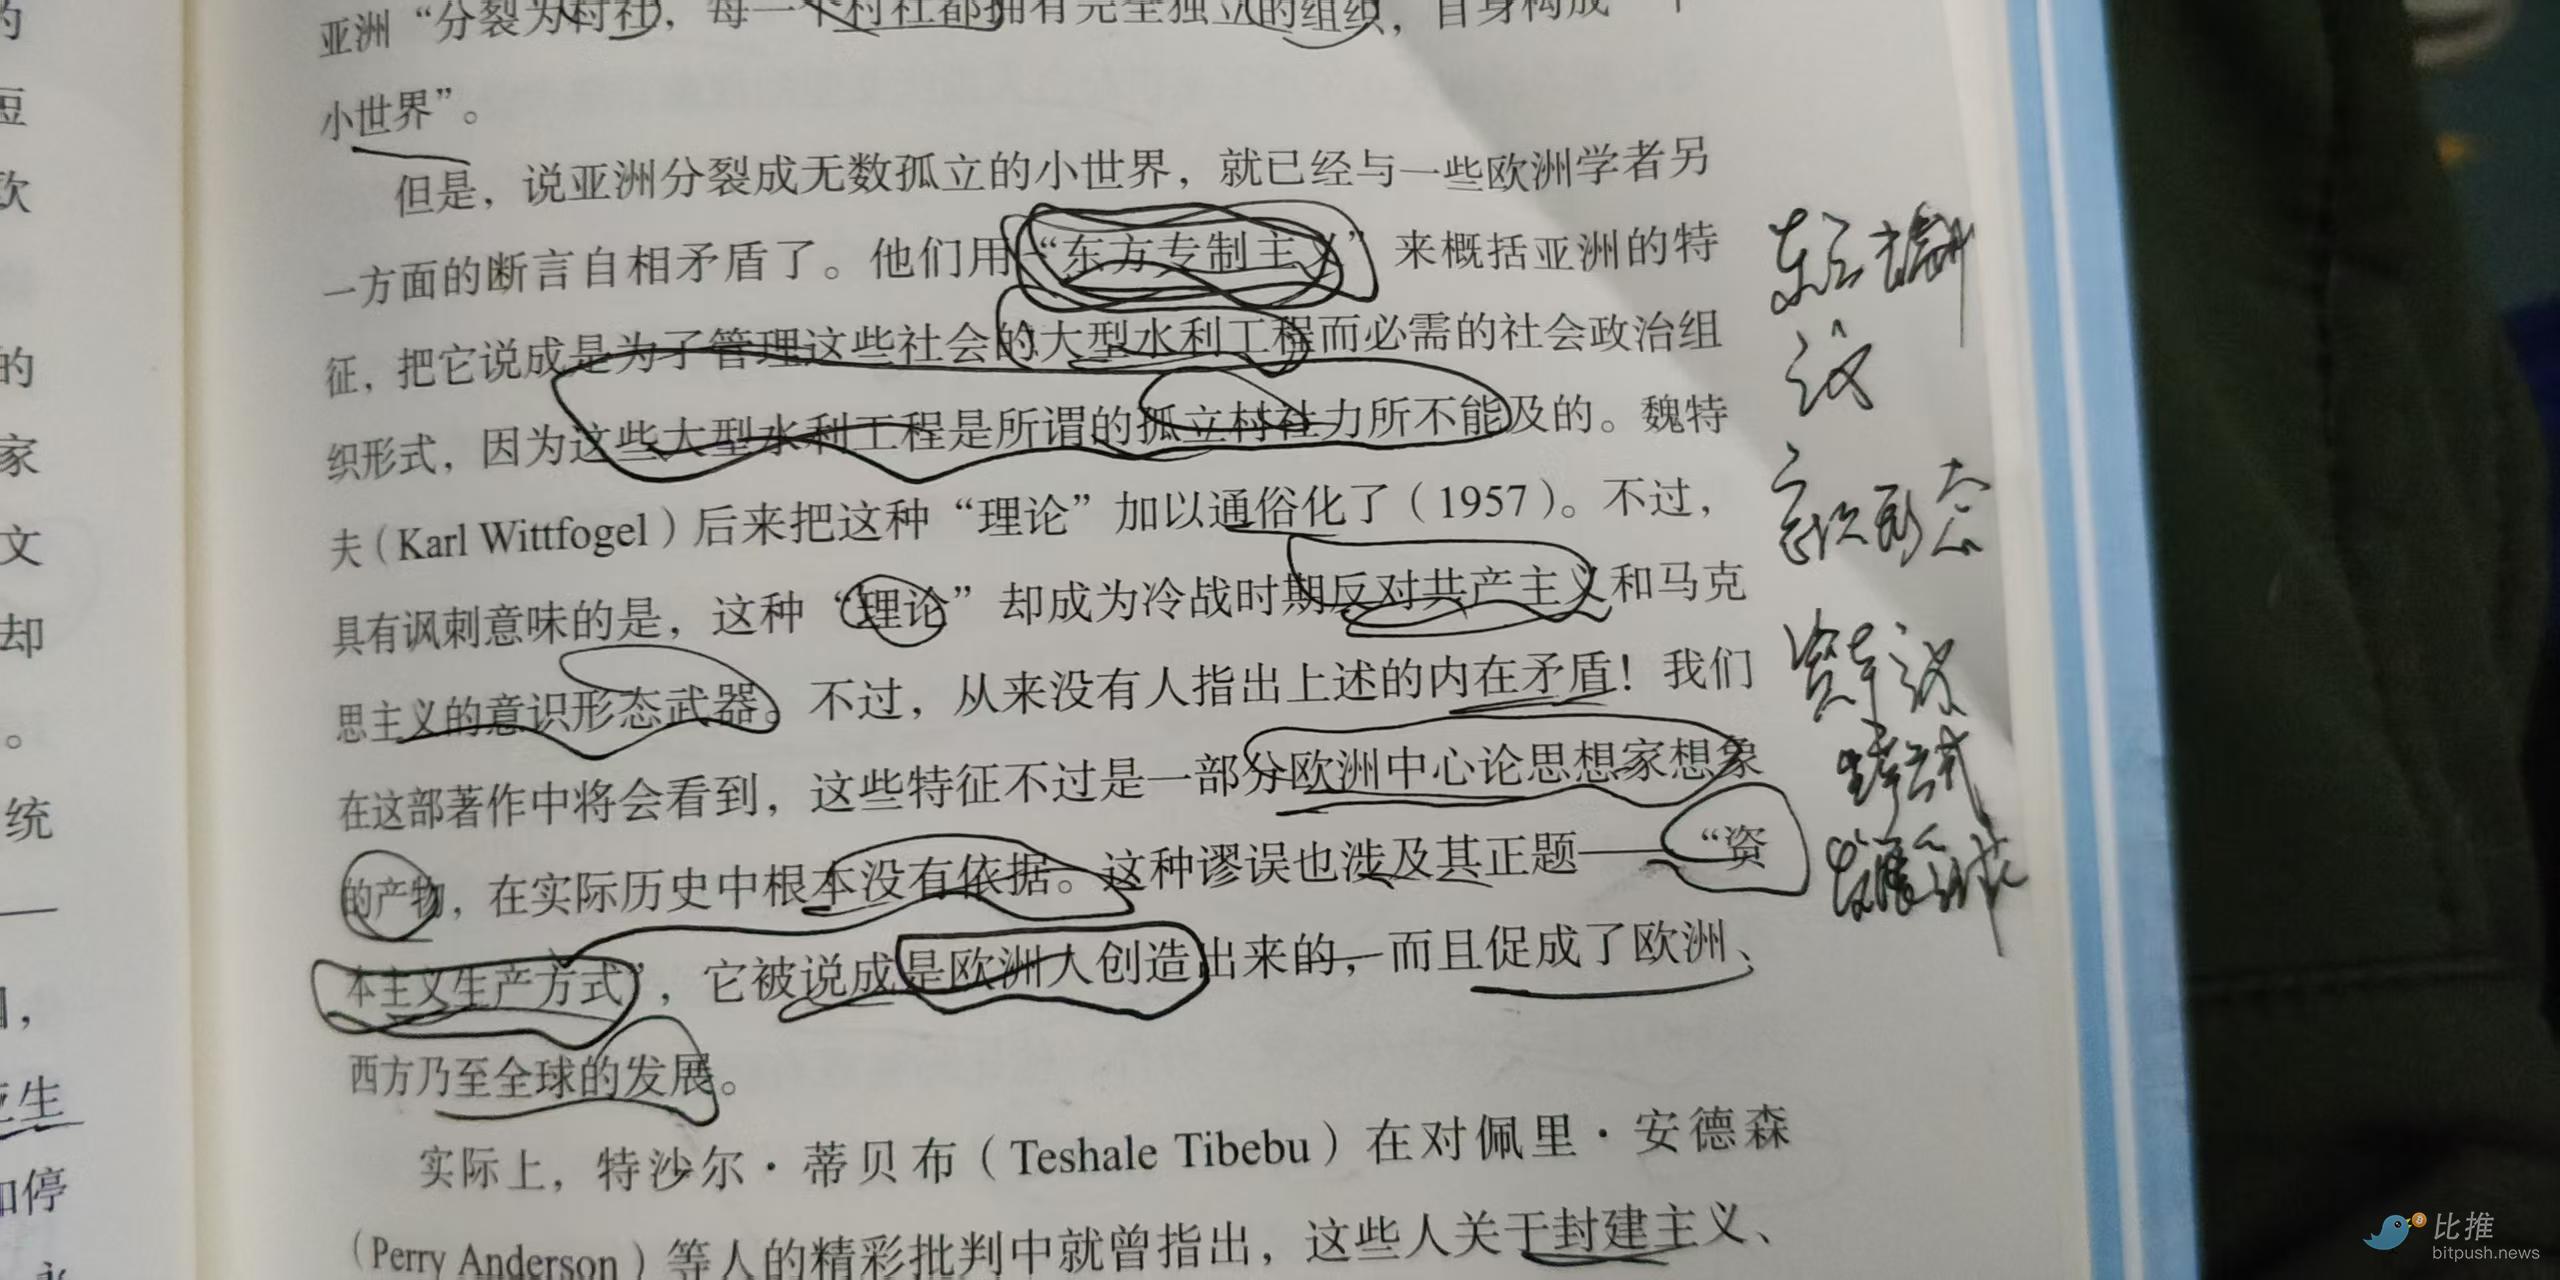 亚洲“分裂为村社，每一个村社都拥有完全独立的组织，自身构成一个
小世界”。
但是，说亚洲分裂成无数孤立的小世界，就已经与一些欧洲学者另
一方面的断言自相矛盾了。他们用“东方专制主义”来概括亚洲的特
征，把它说成是为了管理这些社会的大型水利工程而必需的社会政治组
织形式，因为这些大型水利工程是所谓的孤立村社力所不能及的。魏特
夫（Karl Wittfogel）后来把这种“理论”加以通俗化了（1957）。不过，
具有讽刺意味的是，这种“理论”却成为冷战时期反对共产主义和马克
思主义的意识形态武器。不过，从来没有人指出上述的内在矛盾！我们
在这部著作中将会看到，这些特征不过是一部分欧洲中心论思想家想象
的产物，在实际历史中根本没有依据。这种谬误也涉及其正题——“资
本主义生产方式”，它被说成是欧洲人创造出来的，而且促成了欧洲、
西方乃至全球的发展。
实际上，特沙尔·蒂贝布（Teshale Tibebu）在对佩里·安德森
（Perry Anderson）等人的精彩批判中就曾指出，这些人关于封建主义、
的
短
欢
的
家
文
却
。
统
，
生
停
意识形态
资本主义
生产方式
比推
bitpush.news